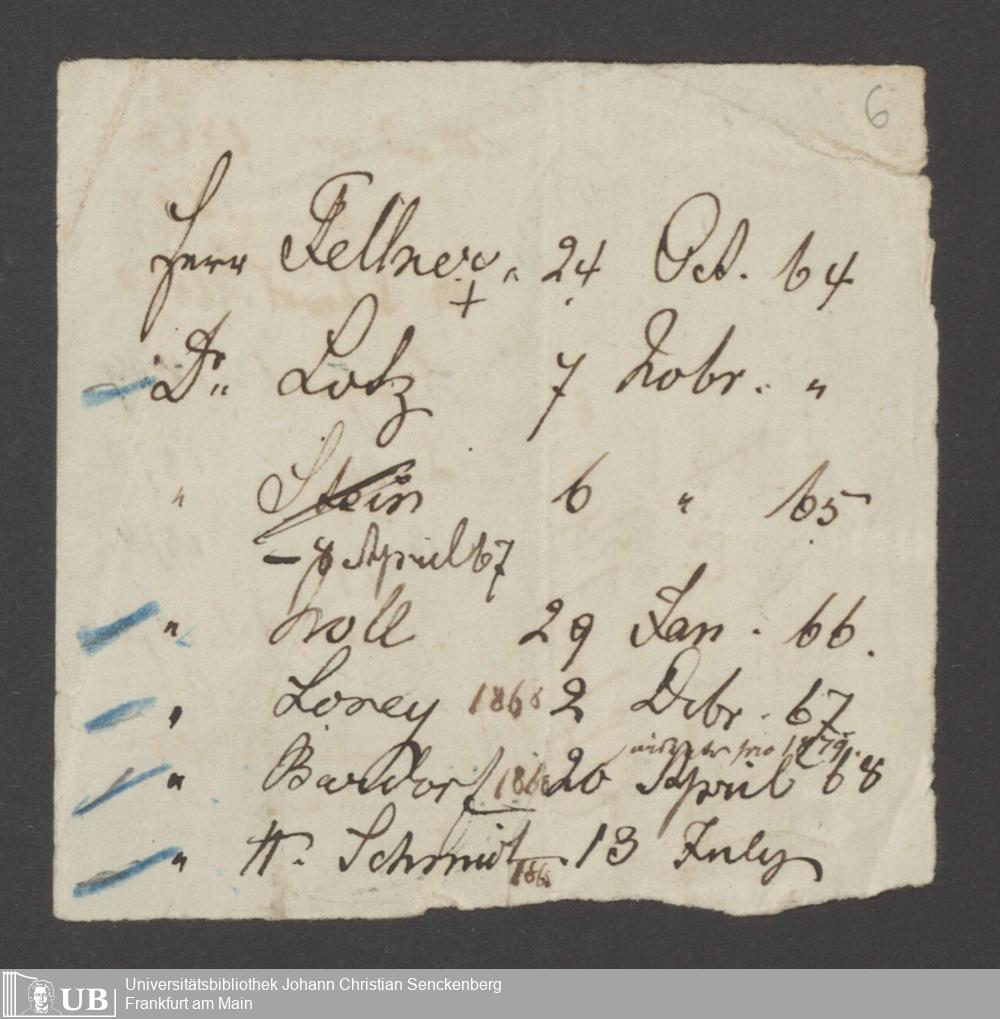 6
Herr Fellner „ 24 Oct. 64
+
Dr. Lotz 7 Nobr. „
„ Stein 6 „ 65
– 8 April 67
„ Noll 29 Jan. 66.
„ Lorey 1868 2 Dcbr. 67
pro 1879.
„ Bardorf 1868 20 April 68
„ H. Schmidt 1868 13 July
UB Universitätsbibliothek Johann Christian Senckenberg
Frankfurt am Main